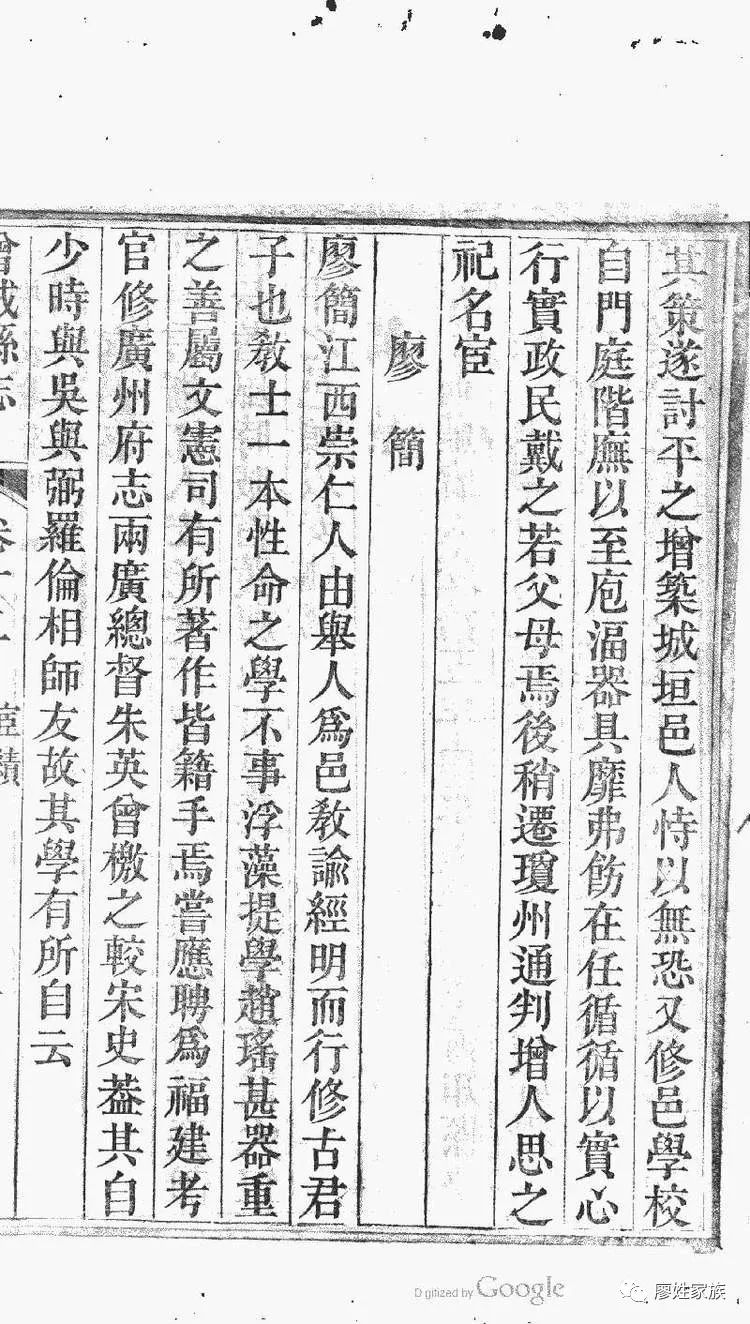 其策遂討平之增築城垣邑人恃以無恐又修邑學校
自門庭階廡以至庖湢器具靡弗飭在任循循以實心
行實政民戴之若父母焉後稍遷瓊州通判增人思之
祀名宦
廖簡
廖簡江西崇仁人由舉人爲邑敎諭經明而行修古君
子也敎士一本性命之學不事浮藻提學趙瑤甚器重
之善屬文憲司有所著作皆籍手焉嘗應聘爲福建考
官修廣州府志兩廣總督朱英曾檄之較宋史葢其自
少時與吳與弼羅倫相師友故其學有所自云
增城縣志
宦績
Digitized by Google
廖姓家族